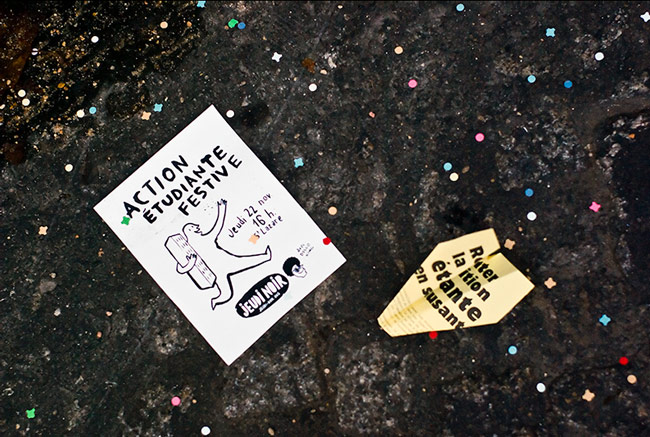 ACTION
ÉTUDIANTE
FESTIVE
Jeudi 22 nov
16 h.
St Lazare
JEUDI NOIR
Ruter
la ition
etante
en susant